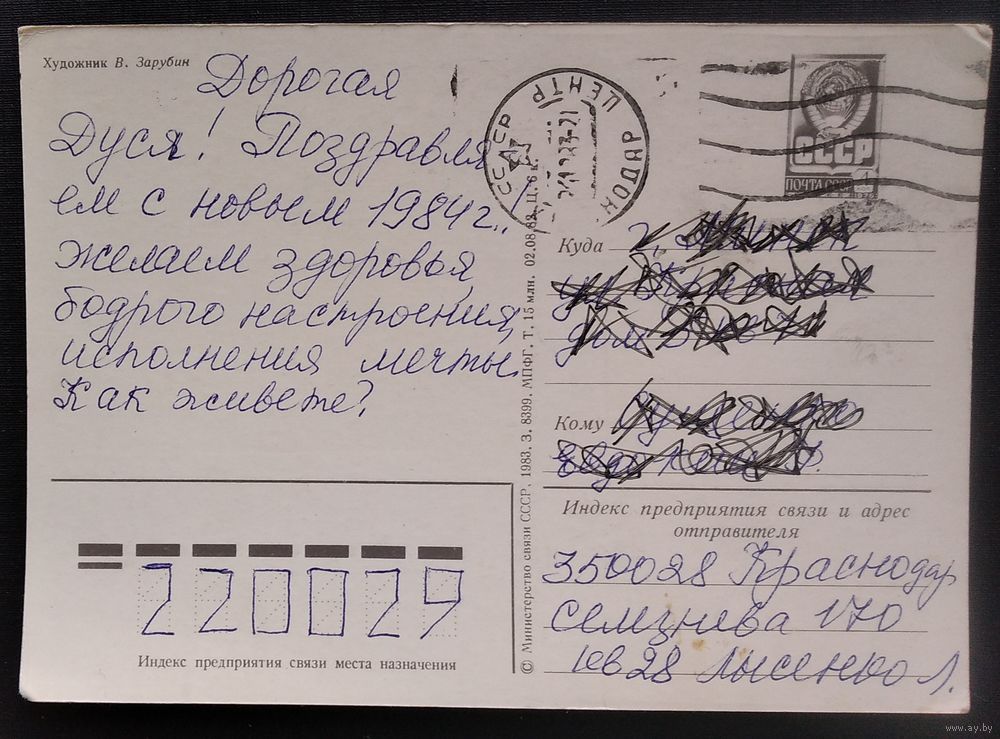 Художник В. Зарубин
Дорогая
Дуся! Поздравля
ем с новым 1984г.!
желаем здоровья,
бодрого настроения,
исполнения мечты.
Как живете?
220029
Индекс предприятия связи места назначения
© Министерство связи СССР, 1983. З. 8399. МПФГ. Т. 15 млн. 02.08.83. Ц. 6 к.
СССР ЦЕНТР
СССР
ПОЧТА СССР 4
Куда г.
ул
дом
Кому
Индекс предприятия связи и адрес
отправителя
350028 Краснодар
Селезнева 170
кв 28 Лысенко Л.
www.ay.by